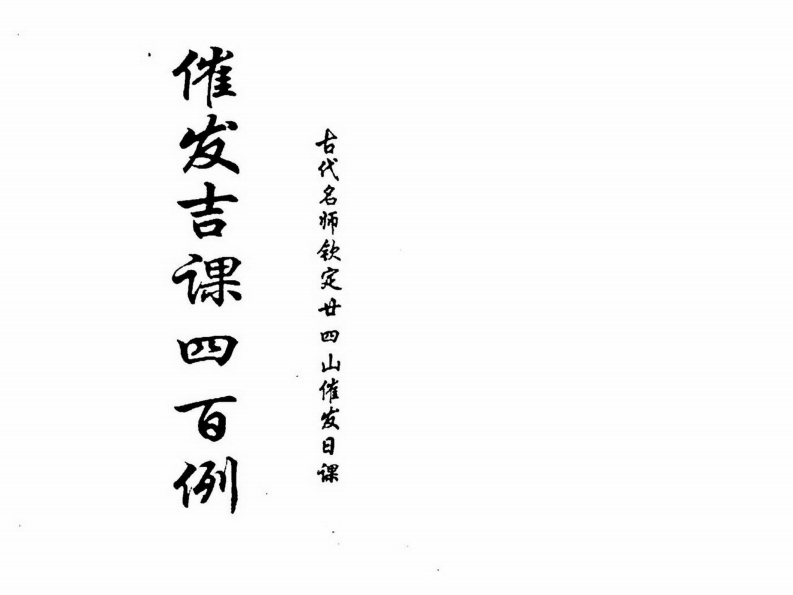 古代名师钦定廿四山催发日课
催发吉课四百例